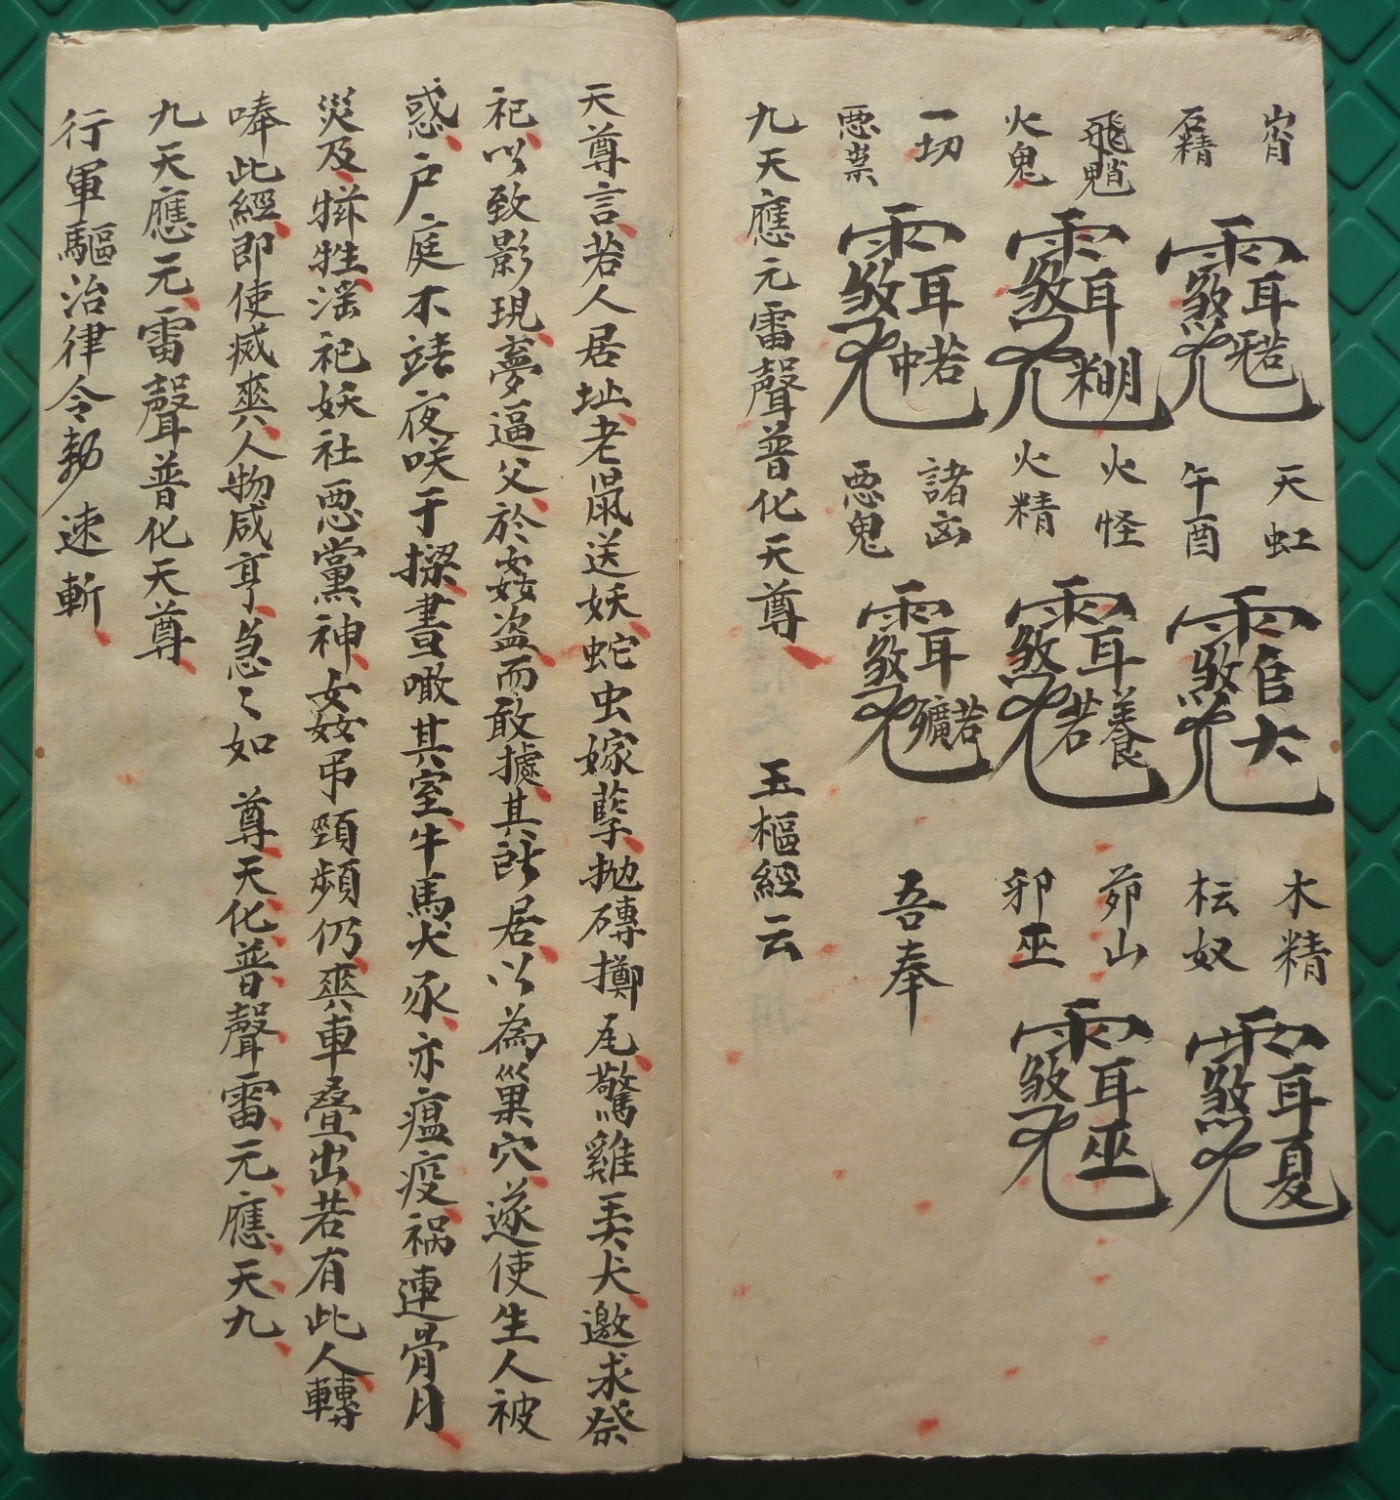 石精
飛魈
火鬼
一切
惡祟
天虹
午酉
火怪
火精
諸凶
惡鬼
木精
枟奴
茆山
邪巫
吾奉
九天應元雷聲普化天尊 玉樞經云
天尊言若人居址老鼠送妖蛇虫嫁孽拋磚擲瓦驚雞弄犬邀求祭
祀以致影現夢逼父於姦盗而敢據其所居以為巢穴遂使生人被
惑户庭不靖夜咲于樑晝瞰其室牛馬犬豕亦瘟疫祸連骨月
災及牲滛祀妖社惡黨神姦吊頸頻仍喪車疊出若有此人轉
唪此經即使灾人物咸亨急々如 尊天化普聲雷元應天九
九天應元雷聲普化天尊
行軍驅治律令勅速斬